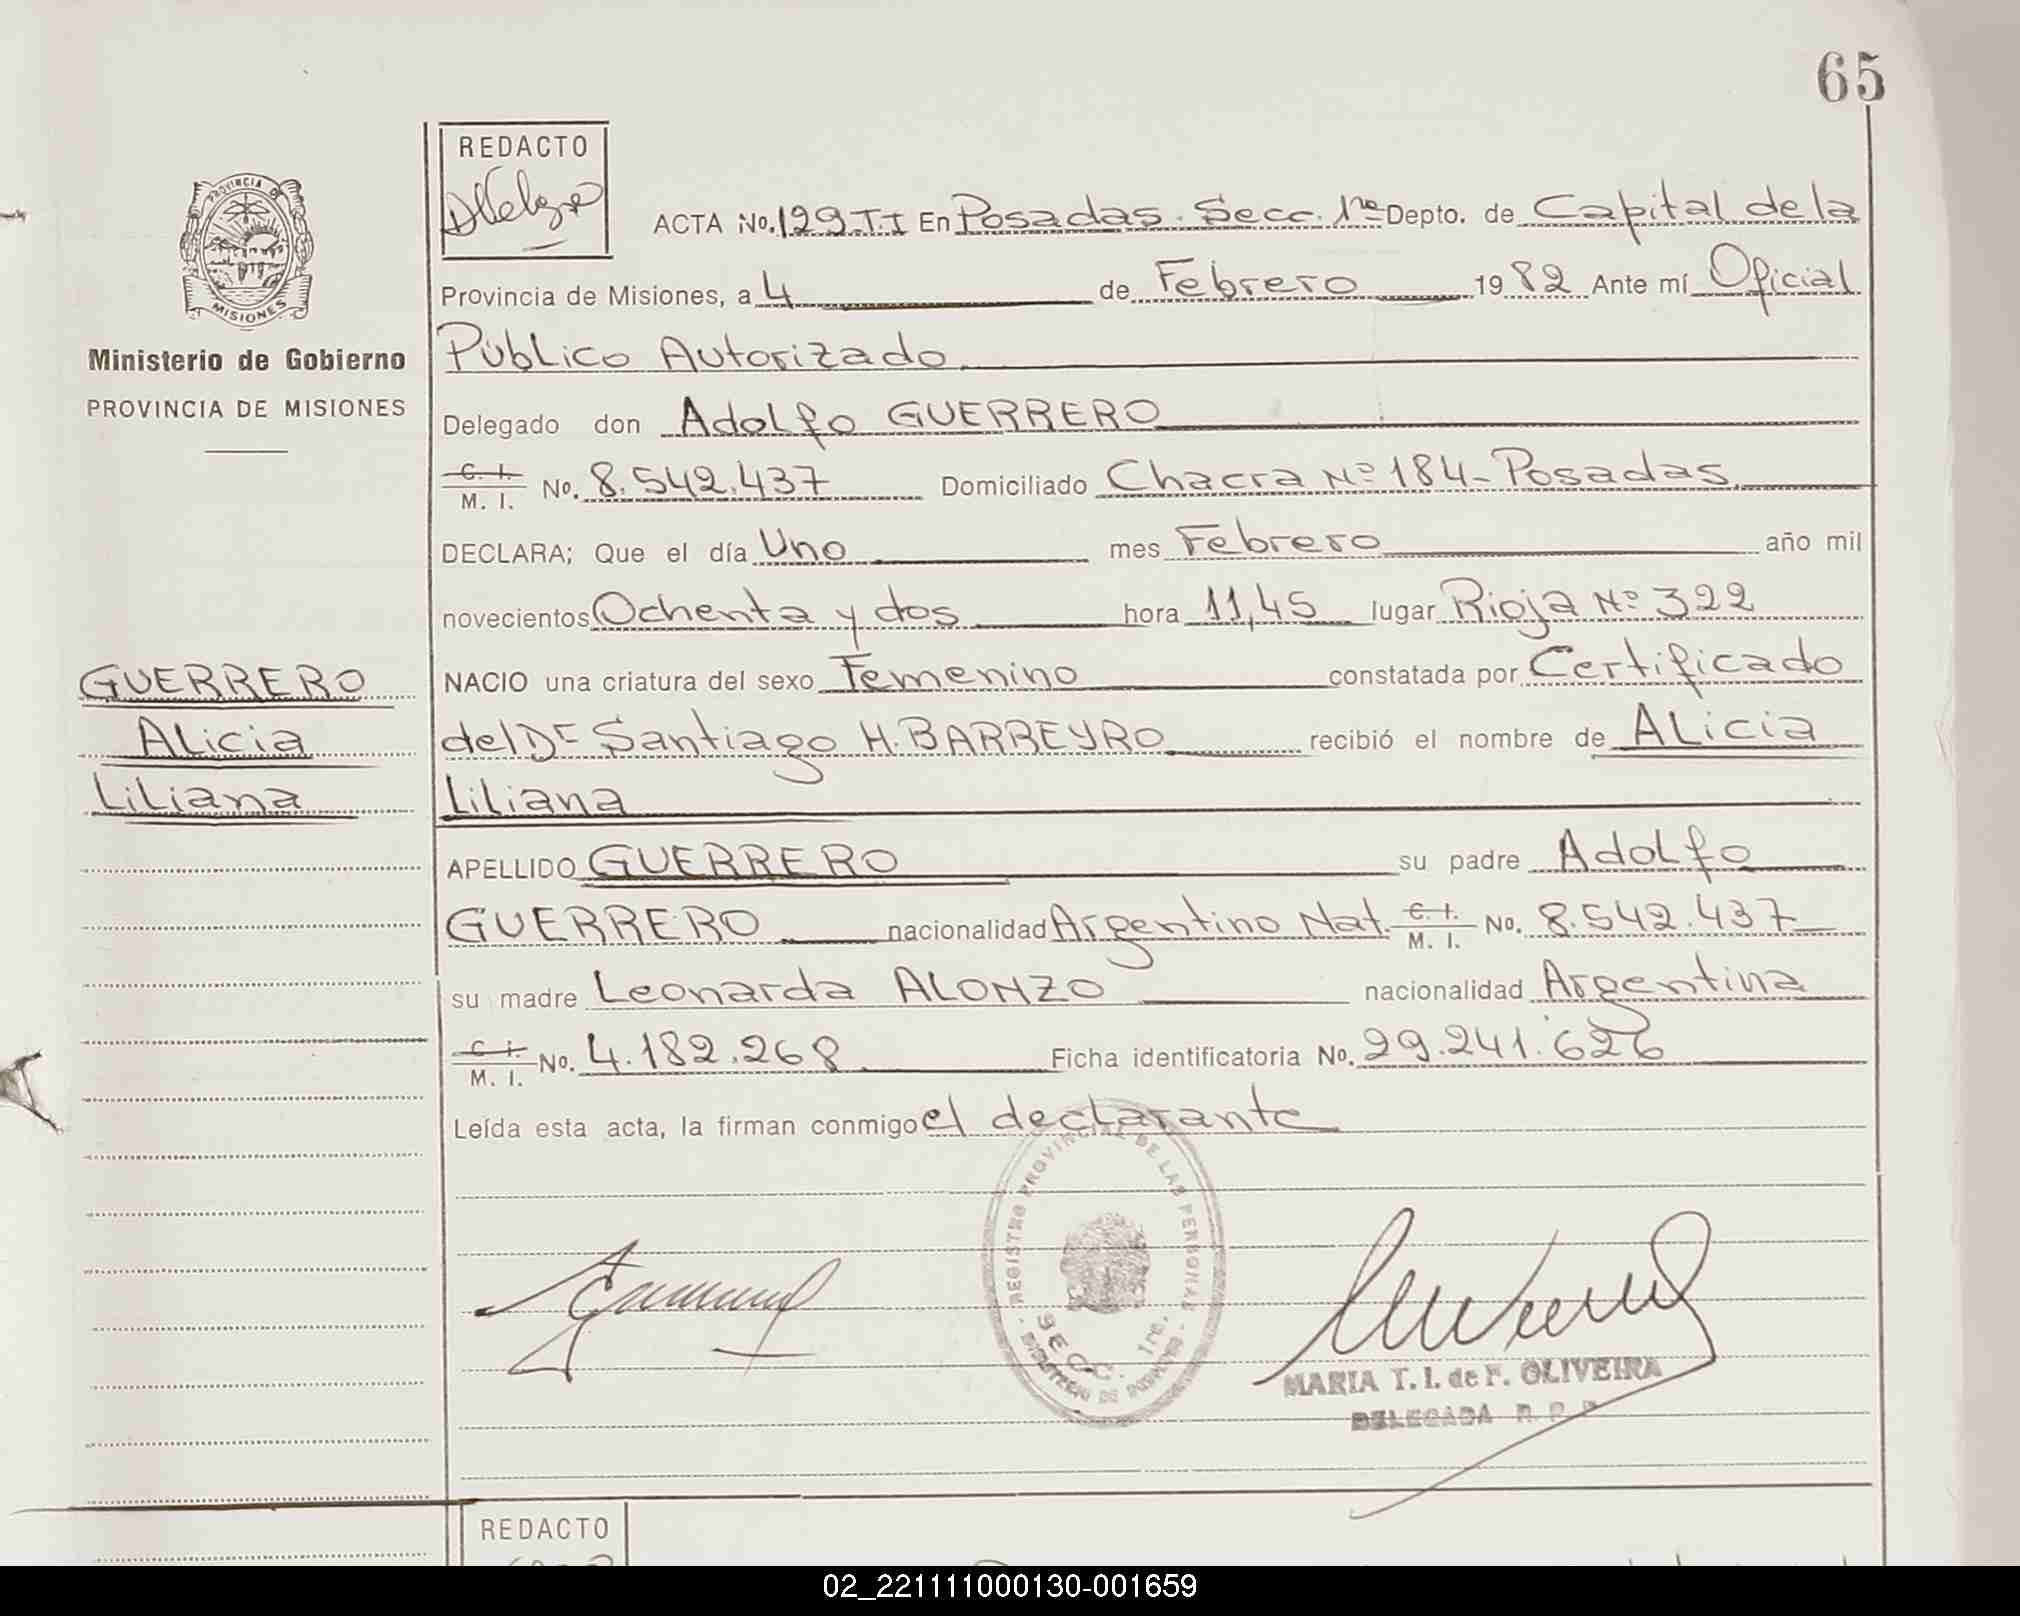 65
REDACTO
ACTA No. 129.T.I En Posadas. Secc. 1ra Depto. de Capital de la
Provincia de Misiones, a 4 de Febrero 1982 Ante mí Oficial
Público Autorizado
Delegado don Adolfo GUERRERO
C. I. M. I. No. 8.542.437 Domiciliado Chacra Nº 184 - Posadas
DECLARA; Que el día Uno mes Febrero año mil
novecientos Ochenta y dos hora 11,45 lugar Rioja Nº 322
NACIO una criatura del sexo Femenino constatada por Certificado
del Dr Santiago H. BARREYRO recibió el nombre de Alicia
Liliana
APELLIDO GUERRERO su padre Adolfo
GUERRERO nacionalidad Argentino Nat. C. I. M. I. No. 8.542.437
su madre Leonarda ALONZO nacionalidad Argentina
C. I. M. I. No. 4.182.268 Ficha identificatoria No. 29.241.626
Leída esta acta, la firman conmigo el declarante
PROVINCIA DE
MISIONES
Ministerio de Gobierno
PROVINCIA DE MISIONES
GUERRERO
Alicia
Liliana
REGISTRO PROVINCIAL DE LAS PERSONAS
SECC. 1ra.
MARIA T. I. de F. OLIVEIRA
DELEGADA R. P. P.
REDACTO
02_221111000130-001659